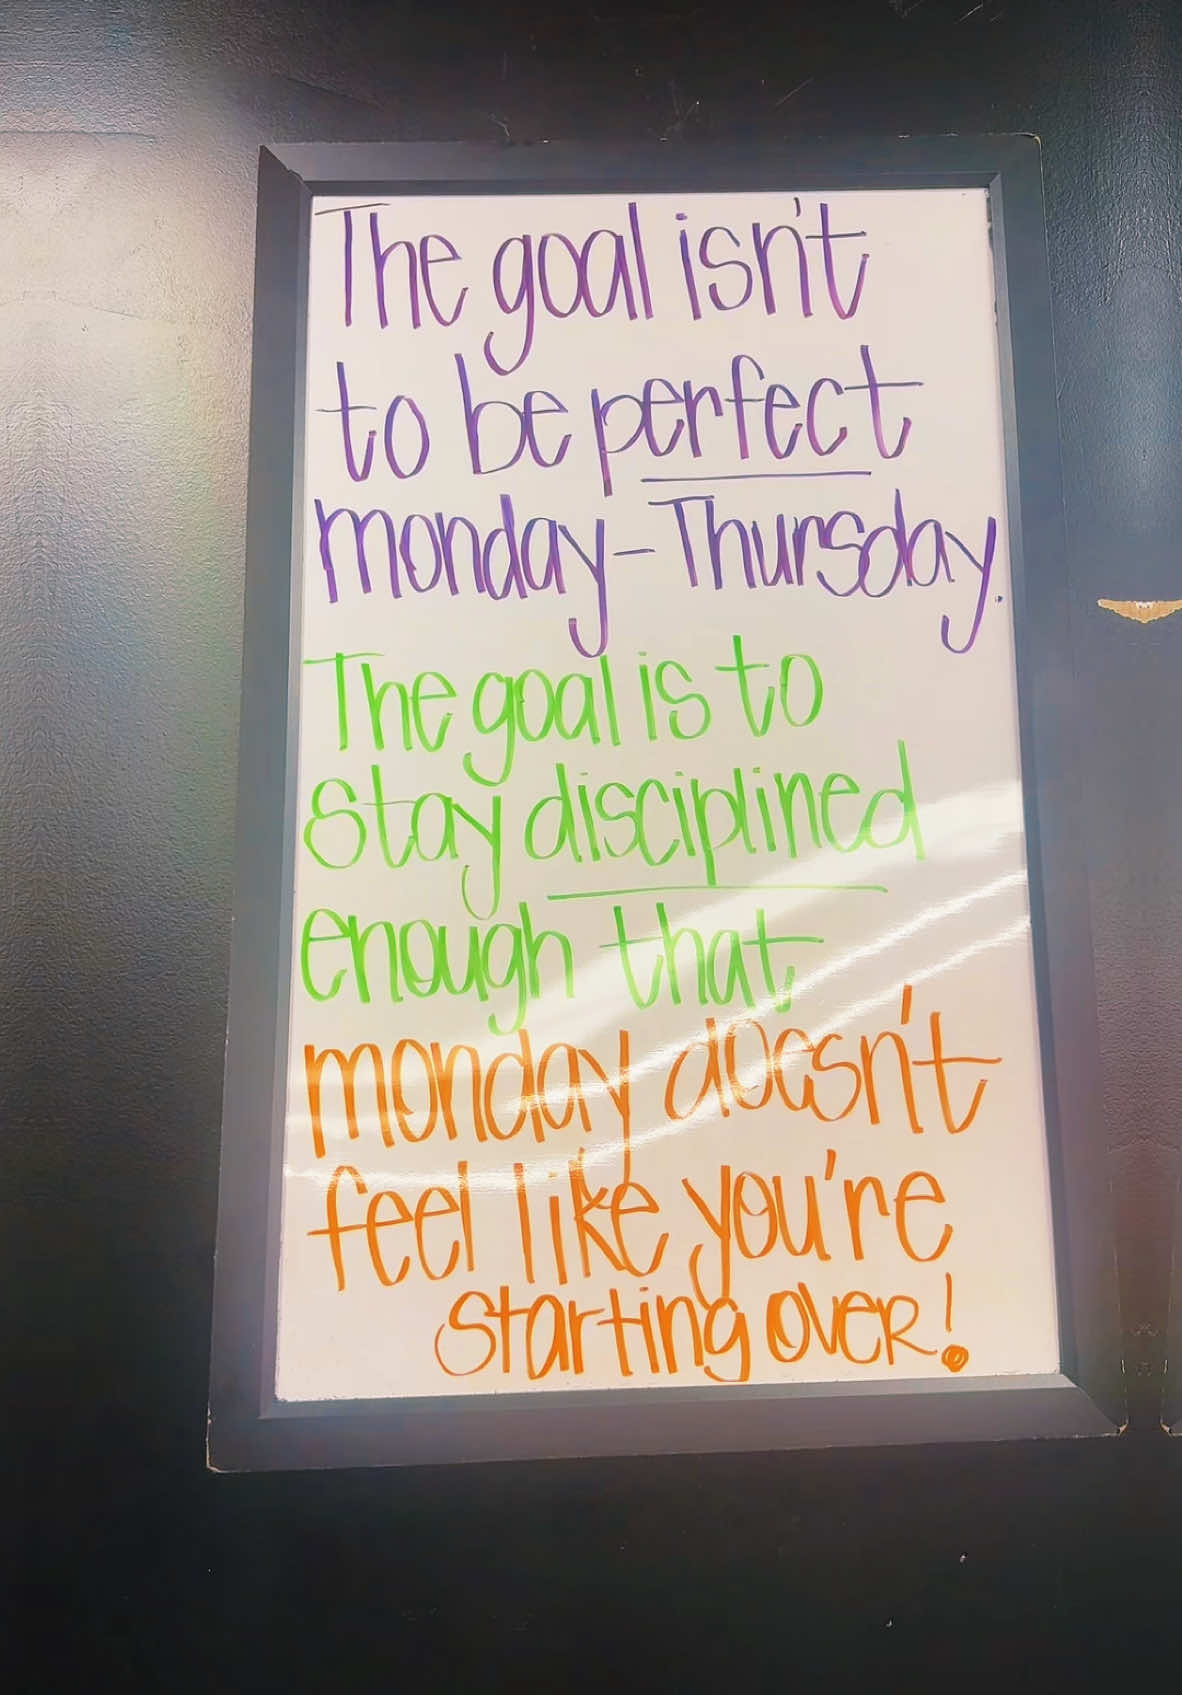 The goal isn't
to be perfect
monday-Thursday.
The goal is to
stay disciplined
enough that
monday doesn't
feel like you're
starting over!